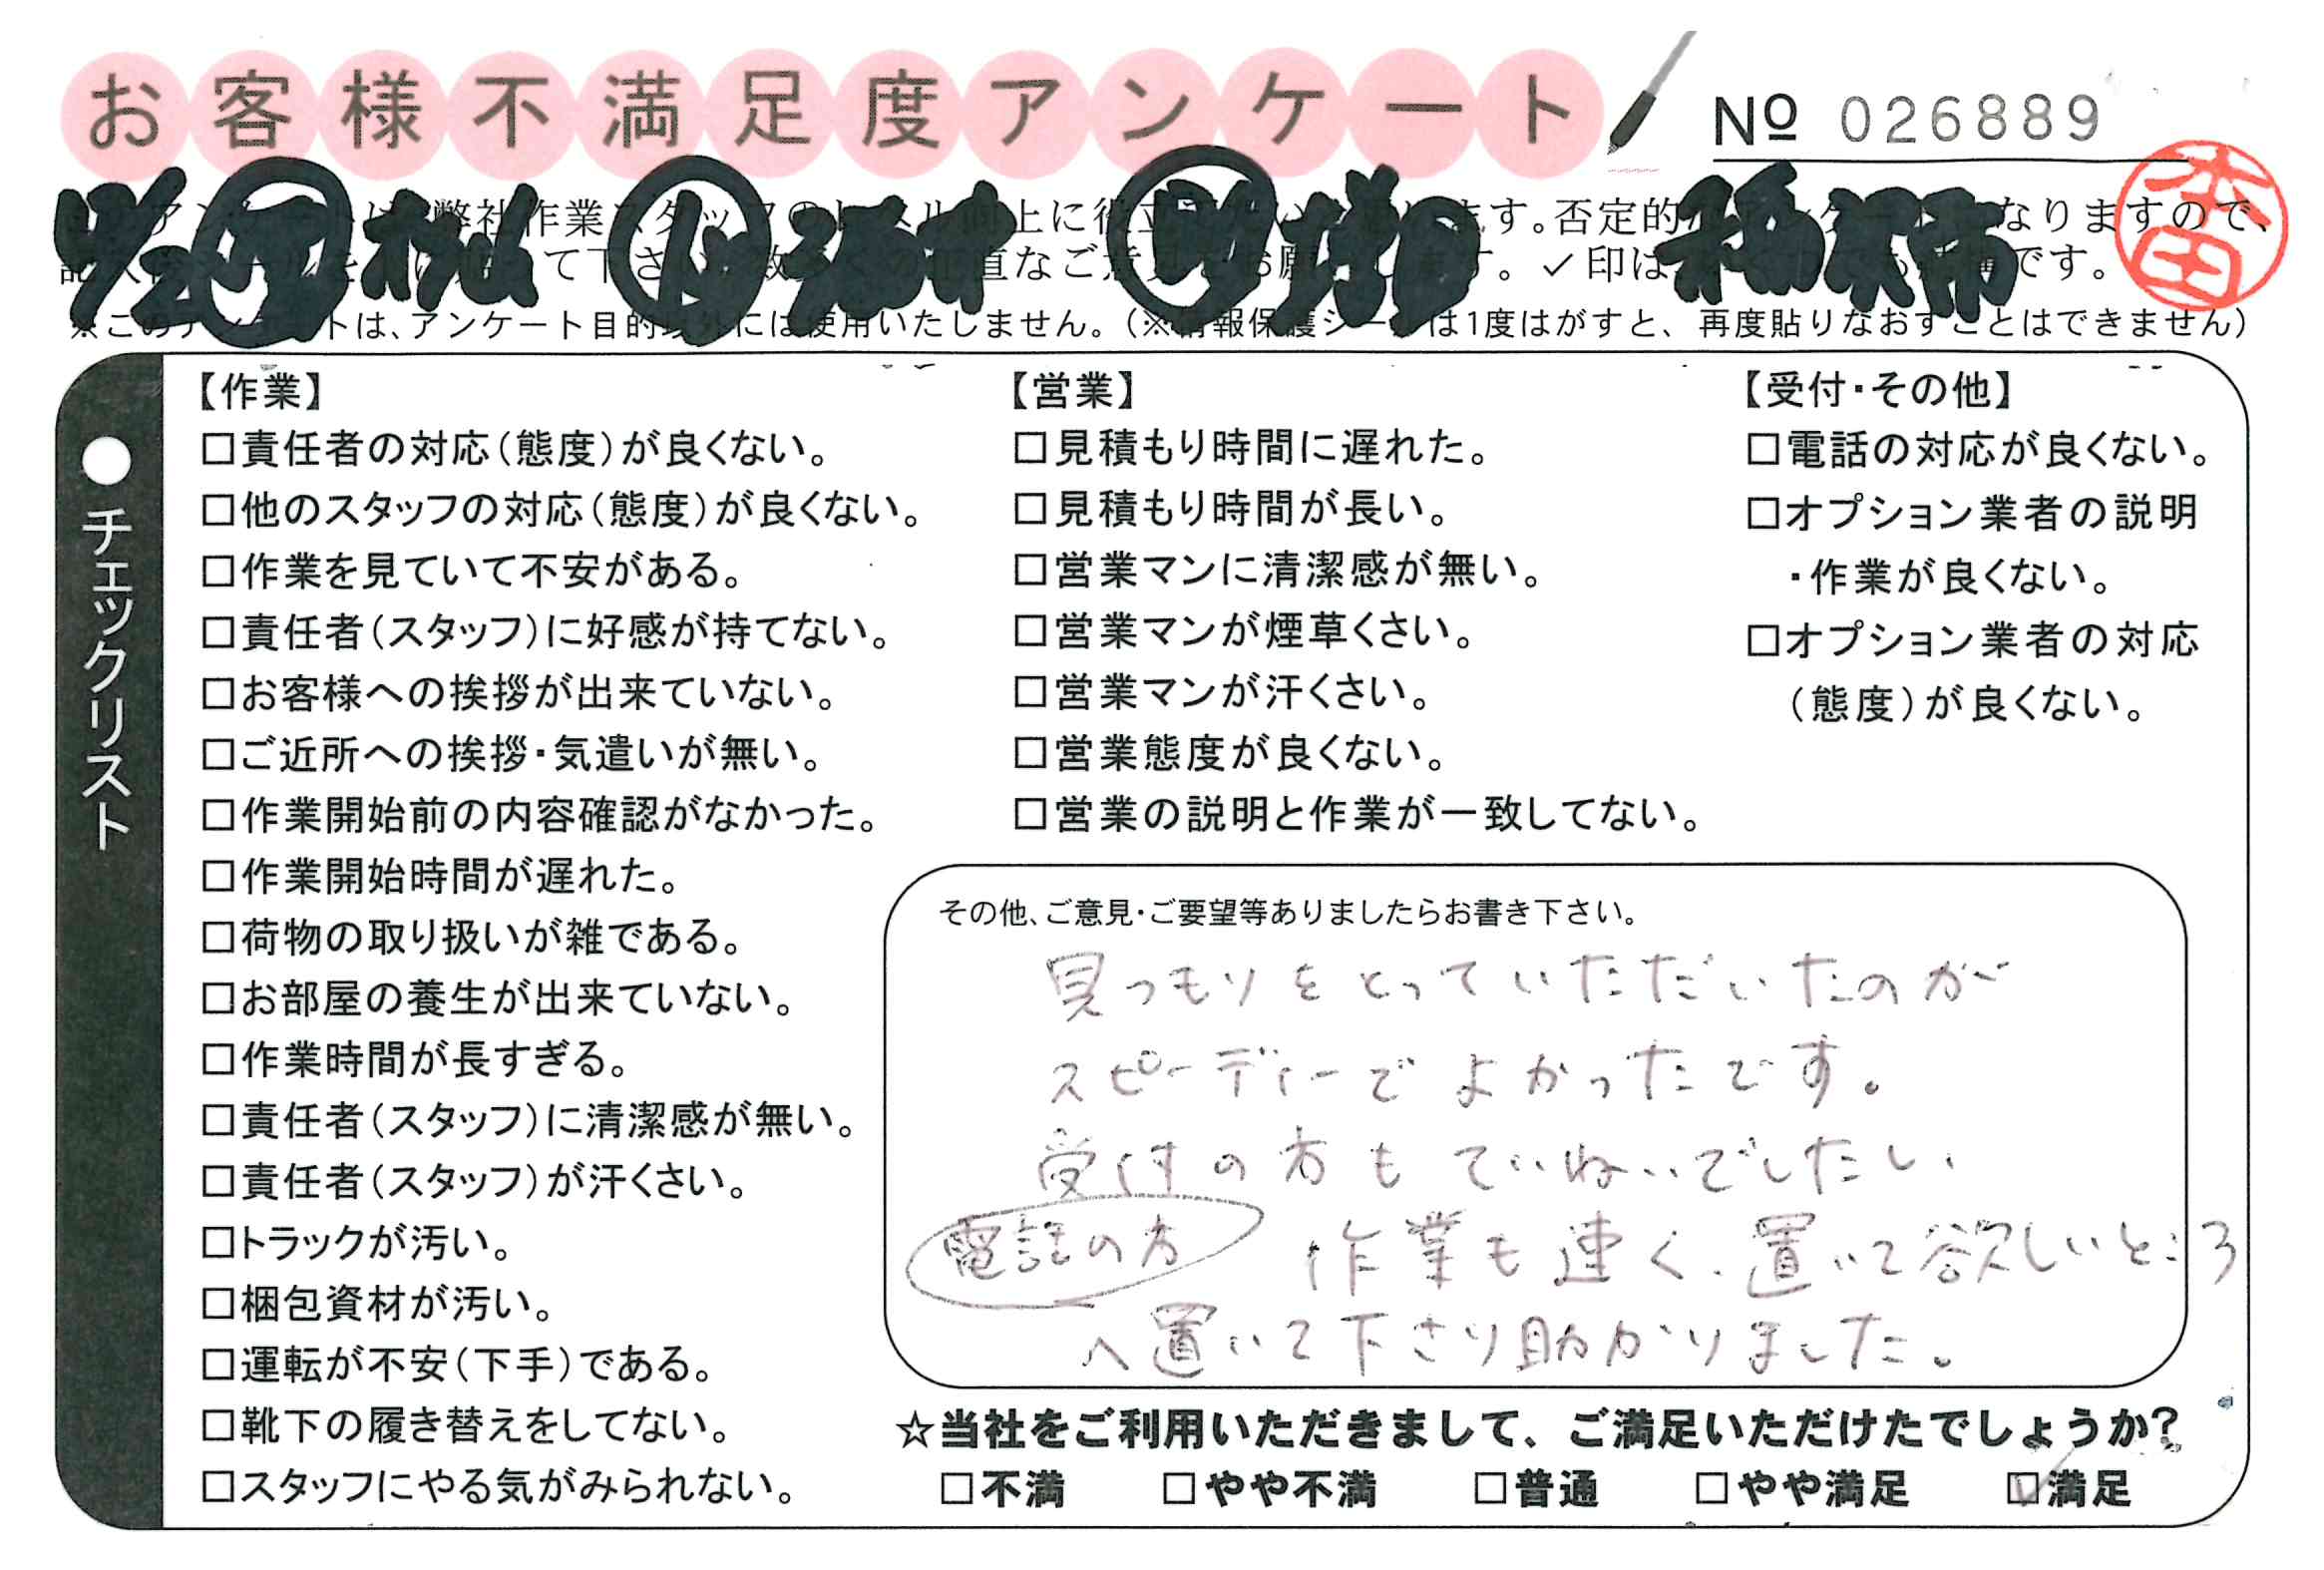 お客様不満足度アンケート
№ 026889
本田
弊社作業スタッフの
上に役立
ます。否定的
なりますので、
て下さ
直なご意見
お願
す。✓印は
です。
※このアンケートは、アンケート目的以外には使用いたしません。（※情報保護シールは1度はがすと、再度貼りなおすことはできません）
●チェックリスト
【作業】
□責任者の対応（態度）が良くない。
□他のスタッフの対応（態度）が良くない。
□作業を見ていて不安がある。
□責任者（スタッフ）に好感が持てない。
□お客様への挨拶が出来ていない。
□ご近所への挨拶・気遣いが無い。
□作業開始前の内容確認がなかった。
□作業開始時間が遅れた。
□荷物の取り扱いが雑である。
□お部屋の養生が出来ていない。
□作業時間が長すぎる。
□責任者（スタッフ）に清潔感が無い。
□責任者（スタッフ）が汗くさい。
□トラックが汚い。
□梱包資材が汚い。
□運転が不安（下手）である。
□靴下の履き替えをしてない。
□スタッフにやる気がみられない。
【営業】
□見積もり時間に遅れた。
□見積もり時間が長い。
□営業マンに清潔感が無い。
□営業マンが煙草くさい。
□営業マンが汗くさい。
□営業態度が良くない。
□営業の説明と作業が一致してない。
【受付・その他】
□電話の対応が良くない。
□オプション業者の説明
・作業が良くない。
□オプション業者の対応
（態度）が良くない。
その他、ご意見・ご要望等ありましたらお書き下さい。
見つもりをとっていただいたのが
スピーディーでよかったです。
受付の方もていねいでしたし、
電話の方 作業も速く、置いて欲しいところ
へ置いて下さり助かりました。
☆当社をご利用いただきまして、ご満足いただけたでしょうか？
□不満 □やや不満 □普通 □やや満足 ☑満足